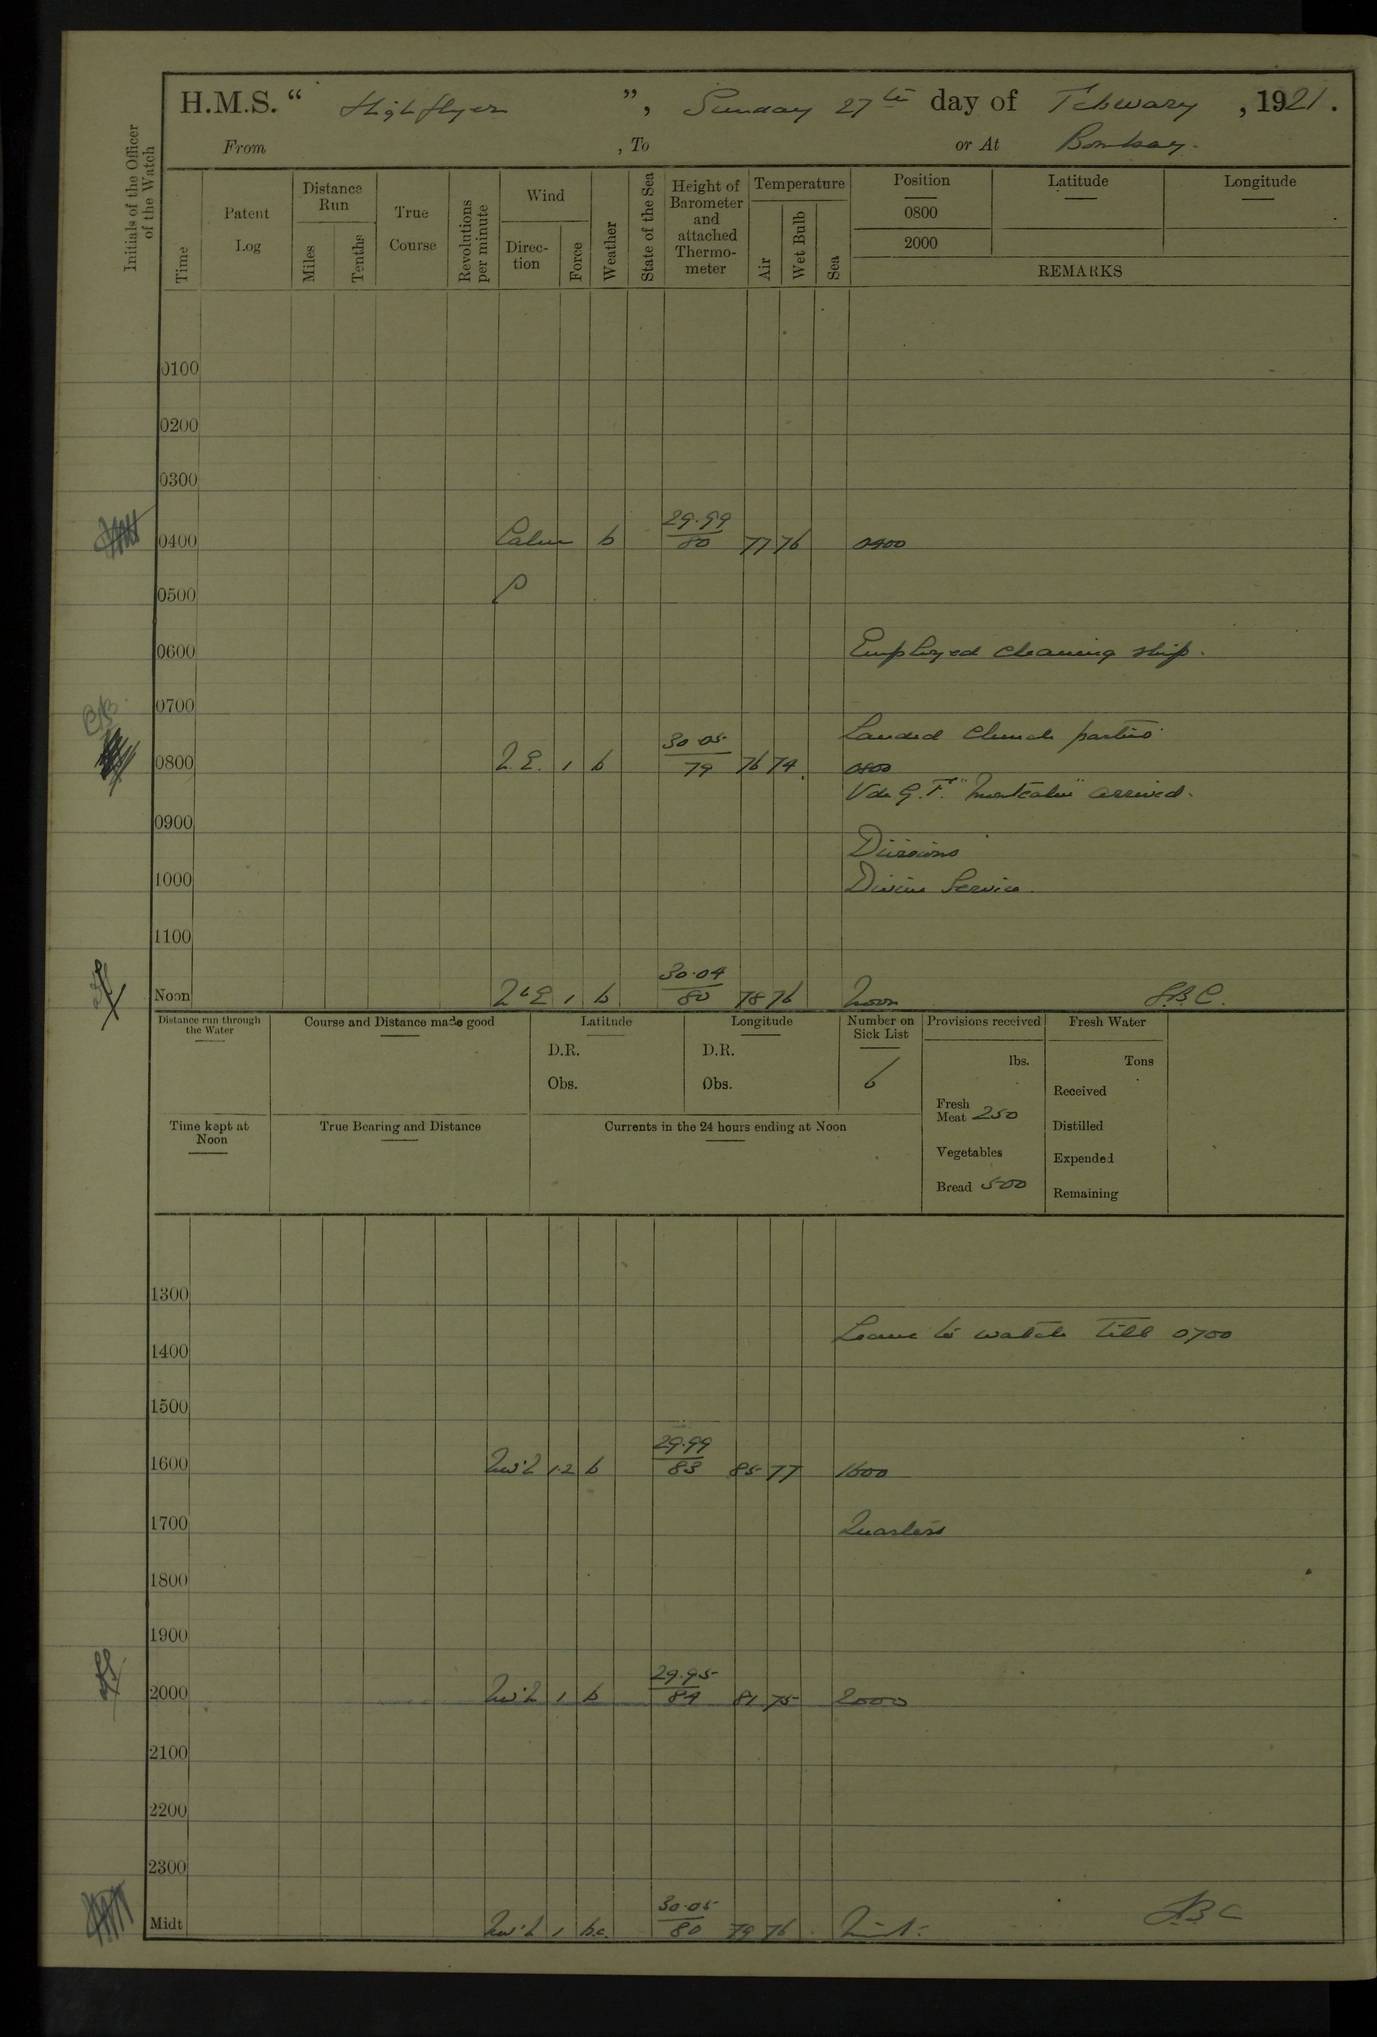 H.M.S. “ Highflyer ”, Sunday 27th day of February, 1921.
From , To or At Bombay.
Initials of the Officer of the Watch
Time
Patent Log
Distance Run
Miles
Tenths
True Course
Revolutions per minute
Wind
Direc-tion
Force
Weather
State of the Sea
Height of Barometer and attached Thermo-meter
Temperature
Air
Wet Bulb
Sea
Position Latitude Longitude
0800
2000
REMARKS
0100
0200
0300
0400 Calm b 29.99 80 77 76 0400
0500
0600 Employed cleaning ship.
0700
Landed Church parties
0800 N.E. 1 b 30.05 79 76 74 0800
arrived.
0900
Divisions
1000 Divine Service.
1100
Noon NbE 1 b 30.04 80 78 76 Noon
Distance run through the Water
Course and Distance made good
Latitude
D.R.
Obs.
Longitude
D.R.
Obs.
Number on Sick List
6
Provisions received
lbs.
Fresh Meat 250
Vegetables
Bread 500
Fresh Water
Tons
Received
Distilled
Expended
Remaining
Time kept at Noon
True Bearing and Distance
Currents in the 24 hours ending at Noon
1300
Leave to watch till 0700
1400
1500
1600 1.2 b 29.99 83 85 77 1600
1700 Quarters
1800
1900
2000 1 b 29.95 84 81 75 2000
2100
2200
2300
Midt 1 b.c. 30.05 80 79 76